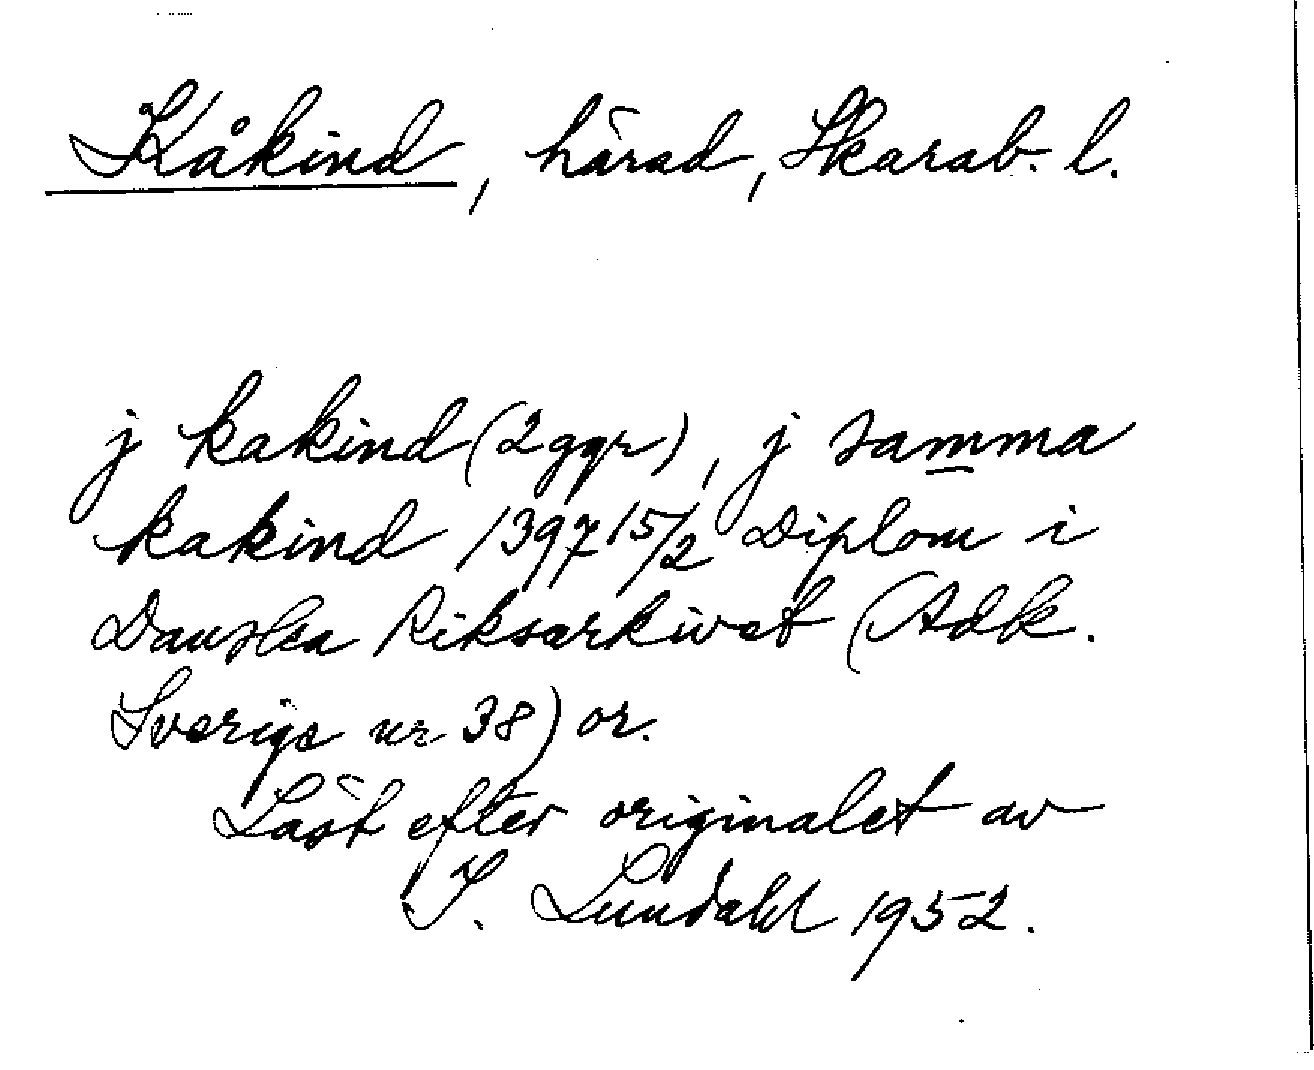 Kåkind, härad, Skarab. l.
j kakind (2 ggr), j samma
kakind 1397 15/2 Diplom i
Danska Riksarkivet (Adk.
Sverige nr 38) or.
Läst efter originalet av
I. Lundahl 1952.